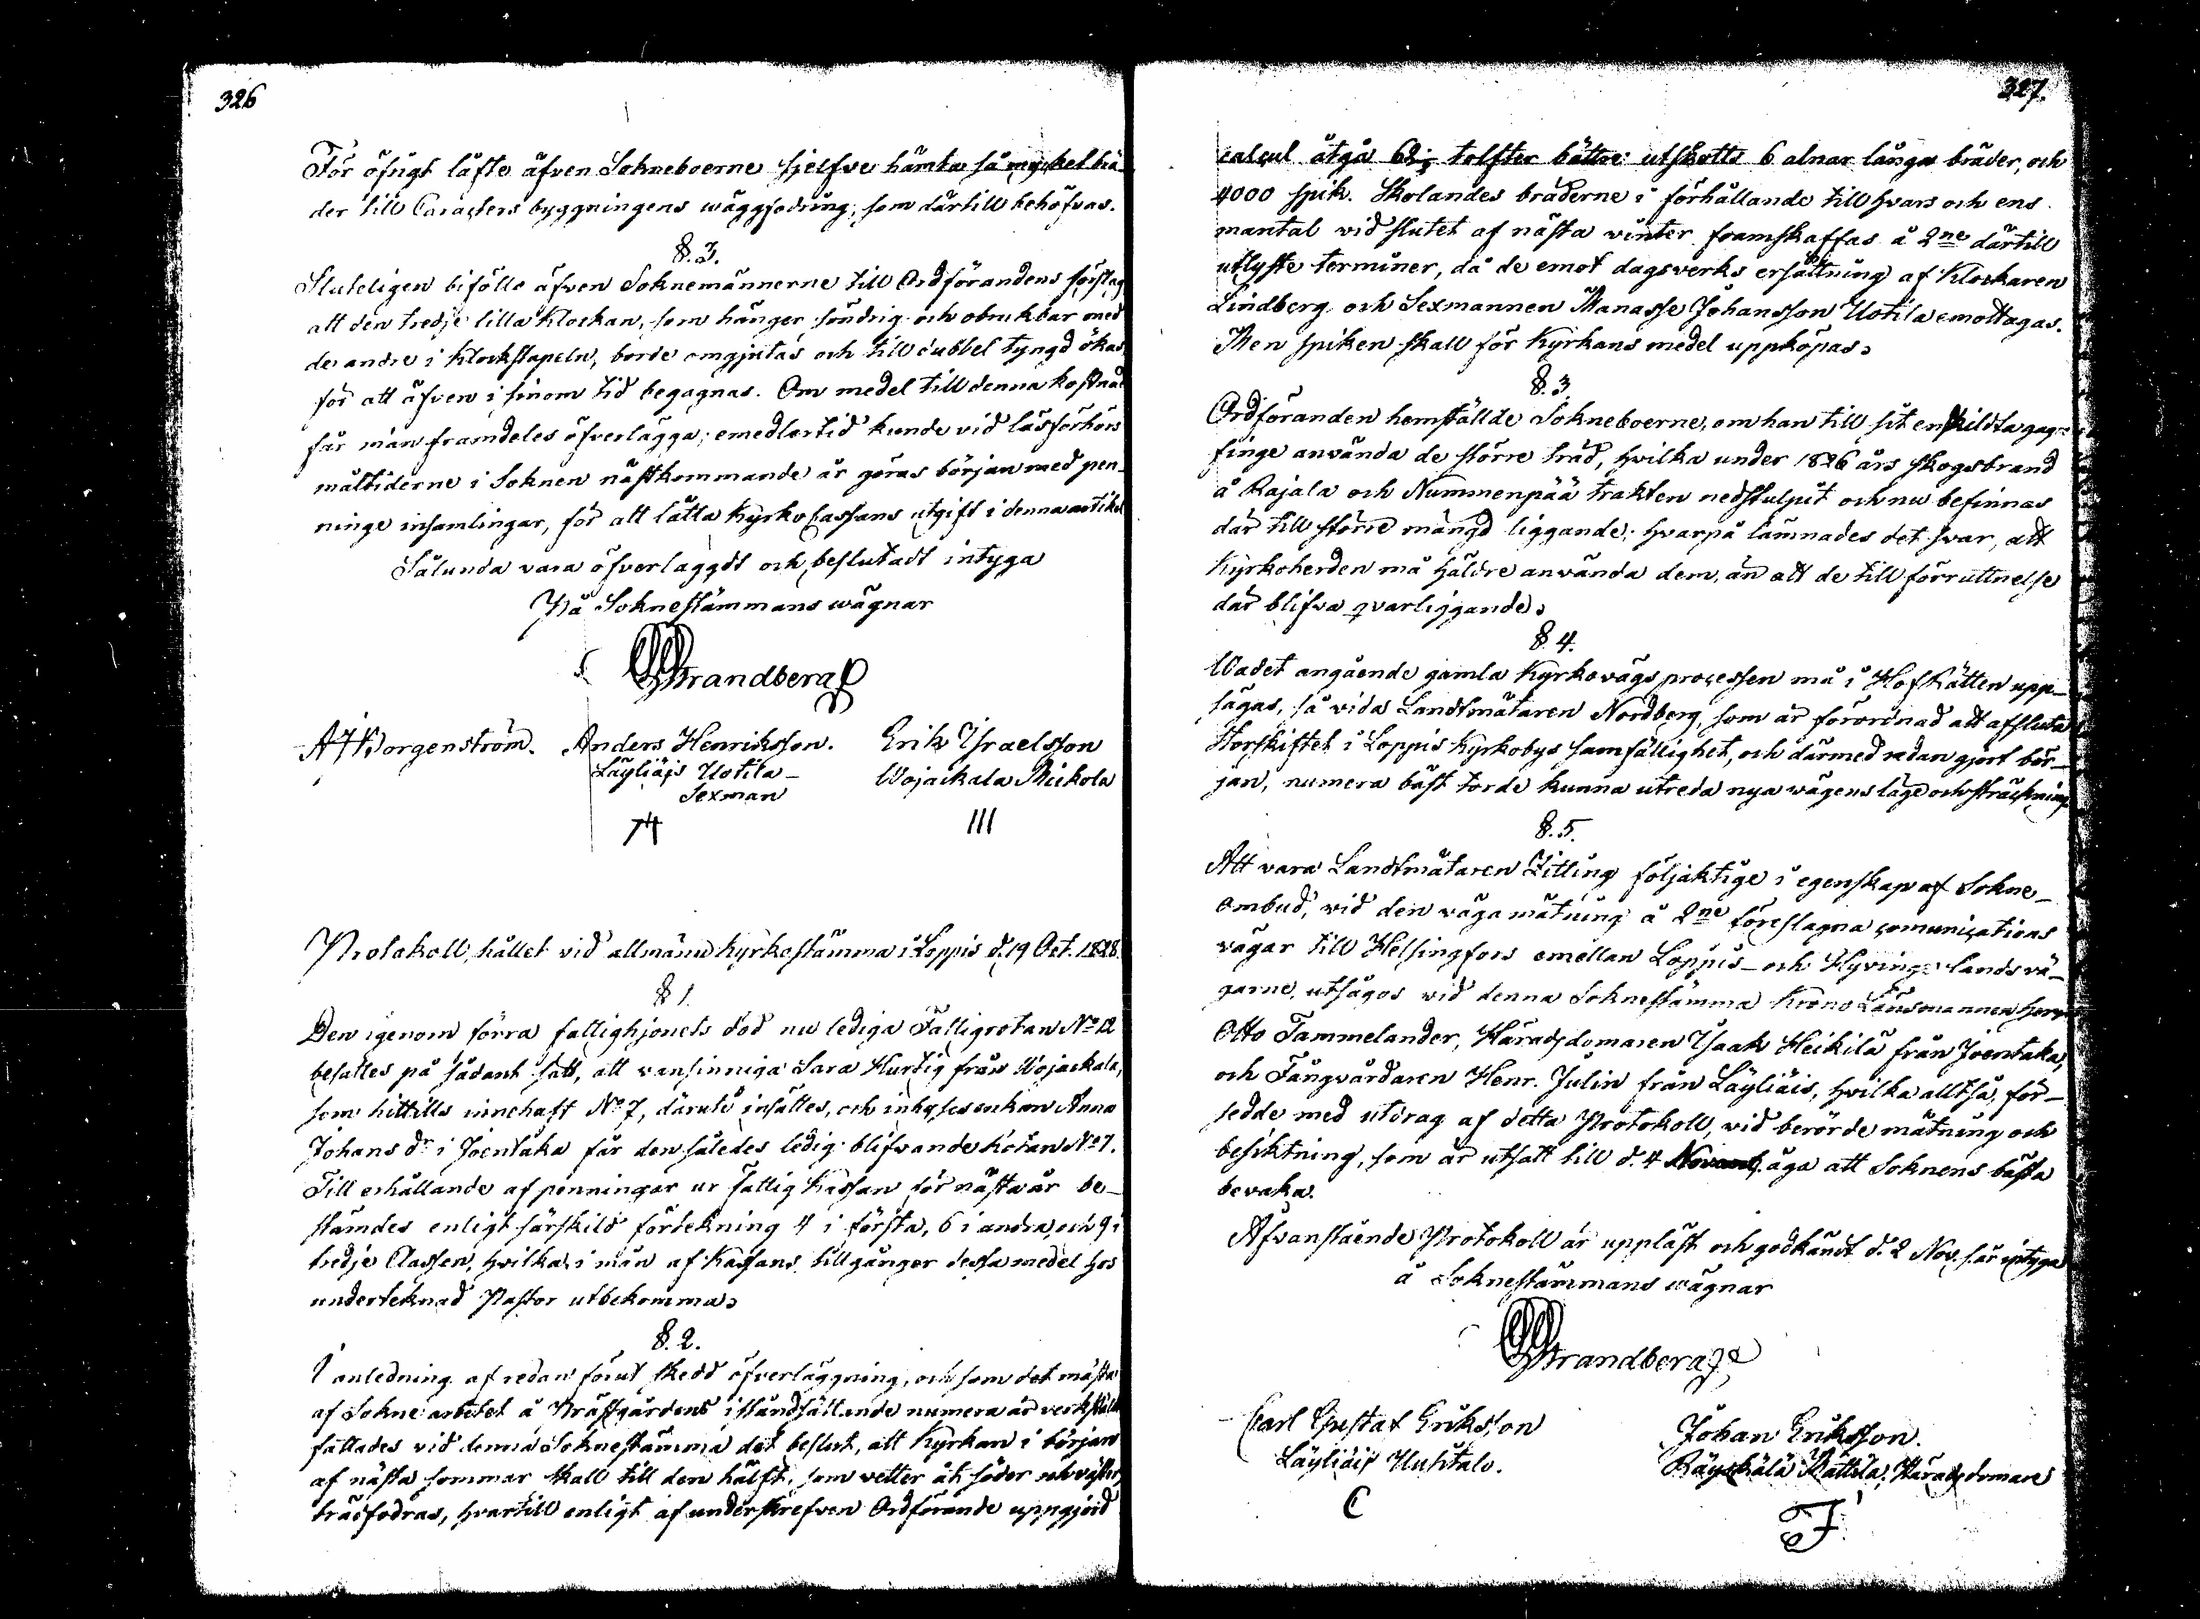 326
För öfrigt låfte äfven Sokneboerne sjelfve hämta så mycket brä-
der till Caracters byggningens wäggfodring, som därtill behöfvas.
§. 3.
Sluteligen biföllo äfven Soknemännerne till Ordförandens förslag
att den tredje lilla Klockan, som hänger söndrig och obrukbar med
de andre i Klockstapeln, borde omgjutas och till dubbel tyngd ökas,
för att äfven i sinom tid begagnas. Om medel till denna kostnad
får man framdeles öfverlägga; emedlertid kunde vid läsförhörs
måltiderne i Soknen nästkommande år göras början med pen-
ninge insamlingar, för att lätta Kyrko Cassans utgift i denna artikel
Sålunda vara öfverlaggdt och beslutadt intyga
På Soknestämmans wägnar
Strandberg
A Borgenström. Anders Henriksson. Erik Israelsson
Läyliäis Uotila Wojakala Mickola
Sexman
III
Protokoll, hållet vid allmänn Kyrkostämma i Loppis d. 19 Oct. 1828.
§ 1.
Den igenom förra fattighjonets död nu lediga Fattigrotan No 12
besattes på sådant sätt, att vansinniga Sara Hurtig från Wojakala,
som hittills innehaft No 7, därutí insättes, och inhyses enkan Anna
Johans dr i Joentaka får den således ledig blifvande Rotan No 7.
Till erhållande af penningar ur Fattig Kassan för nästa år be-
stämdes enligt särskild förtekning 4 i första, 6 i andra, och 9 i
tredje Classen, hvilka i mån af Kassans tillgångar dessa medel hos
underteknad Pastor utbekomma.
§. 2.
I anledning af redan förut skedd öfverläggning, och som det mästa
af Sokne arbetet å Prästgårdens iståndsättande numera är verkstäldt
fattades vid denna Soknestämma det beslut, att Kyrkan i början
af nästa sommar skall till den hälft, som vetter åt söder och väster
brädfodras, hvartill enligt af underskrefven Ordförande uppgjord
327.
calcul åtgå 62 tolfter bättre utskotts 6 alnar långa bräder, och
4000 spik. Skolandes bräderne i förhållande till hvars och ens
mantal vid slutet af nästa vinter framskaffas å 2ne därtill
utlyste terminer, då de emot dagsverks ersättning af Klockaren
Lindberg och Sexmannen Manasse Johansson Uotila emottagas.
Men spiken skall för Kyrkans medel uppköpas.
§. 3.
Ordföranden hemställde Sokneboerne, om han till sit enskildta gagn
finge använda de större träd, hvilka under 1826 års skogsbrand
å Rajala och Nummenpää trakten nedstulpit och nu befinnas
där till större mängd liggande; hvarpå lämnades det svar, att
Kyrkoherden må häldre använda dem, än att de till förruttnelse
där blifva qvarliggande.
§ 4.
Wadet angående gamla Kyrkovägs processen må i HofRätten upp-
sägas, så vida Landtmätaren Nordberg, som är förordnad att afsluta
Storskiftet i Loppis Kyrkobys samfällighet, och därmed redan gjort bör-
jan, numera bäst torde kunna utreda nya wägens läge och sträckning
§. 5.
Att vara Landtmätaren Zitting följaktige i egenskap af Sokne-
ombud, vid den väga mätning å 2ne föreslagna comunications
vägar till Helsingfors emellan Loppis- och Hyvinge landsvä-
garne, utsågos vid denna Soknestämma Krono Länsmannen Herr
Otto Tammelander, Häradsdomaren Isaak Heikilä från Joentaka,
och Fångvårdaren Henr. Julin från Läyliäis, hvilka alltså, för-
sedde med utdrag af detta Protokoll, vid berörde mätning och
besiktning, som är utsatt till d. 4 Novemb. äga att Soknens bästa
bevaka.
Afvanstående Protokoll är uppläst och godkändt d. 2 Nov. s. år intyga
å Soknestämmans wägnar
Strandberg
Carl Gustaf Eriksson Johan Eriksson.
Läyliäis Huhtala. Räyskälä Mattila, Häradsdomare
C